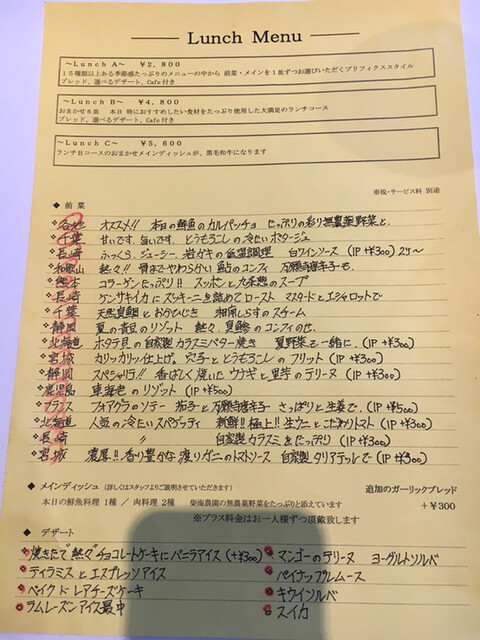 Lunch Menu
～Lunch A～ ￥2,800
15種類以上ある季節感たっぷりのメニューの中から 前菜・メインを1皿ずつお選びいただくプリフィクススタイル
ブレッド、選べるデザート、Cafe付き
～Lunch B～ ￥4,800
おまかせ6皿 本日 特におすすめしたい食材をたっぷり使用した大満足のランチコース
ブレッド、選べるデザート、Cafe付き
～Lunch C～ ￥5,600
ランチBコースのおまかせメインディッシュが、黒毛和牛になります
※税・サービス料 別途
◆ 前 菜
各地 オススメ!! 本日の鮮魚のカルパッチョ たっぷりの彩り無農薬野菜と.
千葉 甘いです. 旨いです. とうもろこしの冷たいポタージュ
長崎 ふっくら. ジューシー. 岩ガキの低温調理 白ワインソース (1P +¥300) 2P〜
和歌山 熱々!! 骨までやわらかい 鮎のコンフィ 万願寺唐辛子も.
熊本 コラーゲンたっぷり!! スッポンと九条葱のスープ
長崎 ケンサキイカにズッキーニを詰めてロースト マスタードとエシャロットで
千葉 天然真鯛とおかひじき 相州しらすのスチーム
静岡 夏の青豆のリゾット 熱々. 真鯵のコンフィのせ.
北海道 ホタテ貝の自家製カラスミバター焼き 夏野菜と一緒に. (1P +¥300)
宮城 カリッカリッ仕上げ. 穴子ととうもろこしのフリット (1P +¥300)
静岡 スペシャリテ!! 香ばしく焼いたウナギと里芋のテリーヌ (1P +¥300)
鹿児島 車海老のリゾット (1P +¥500)
フランス フォアグラのソテー 茄子と万願寺唐辛子 さっぱりと生姜で. (1P +¥500)
北海道 人気の冷たいスパゲッティ 新鮮!! 極上!! 生ウニとこだわりトマト (1P +¥300)
長崎 〃 自家製カラスミをたっぷり (1P +¥300)
宮城 濃厚!! 香り豊かな渡りガニのトマトソース 自家製タリアテッレで (1P +¥300)
◆ メインディッシュ (詳しくはスタッフよりご説明させていただきます) 追加のガーリックブレッド
本日の鮮魚料理 1種 / 肉料理 2種 柴海農園の無農薬野菜をたっぷりと添えています +￥300
※プラス料金はお一人様ずつ頂戴致します
◆ デザート
焼きたて"熱々"チョコレートケーキにバニラアイス (+¥300) マンゴーのテリーヌ ヨーグルトソルベ
ティラミスとエスプレッソアイス パイナップルムース
ベイクドレアチーズケーキ キウイソルベ
ラムレーズンアイス最中 スイカ